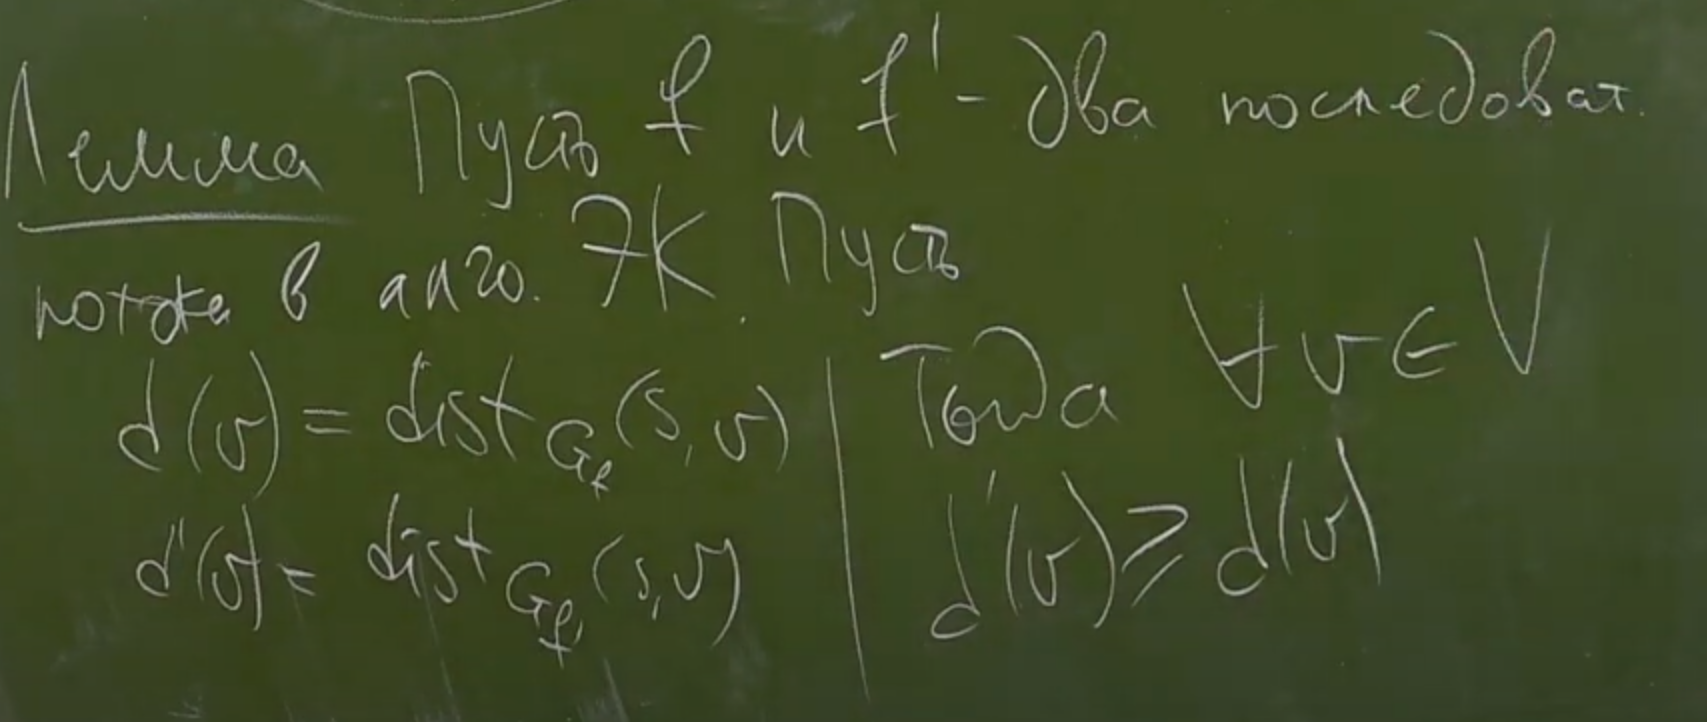 Лемма Пусть f и f' - два последоват.
потока в алго. ЭК. Пусть
d(v) = dist_{G_f}(s, v) | Тогда ∀ v ∈ V
d'(v) = dist_{G_{f'}}(s, v) | d'(v) ≥ d(v)